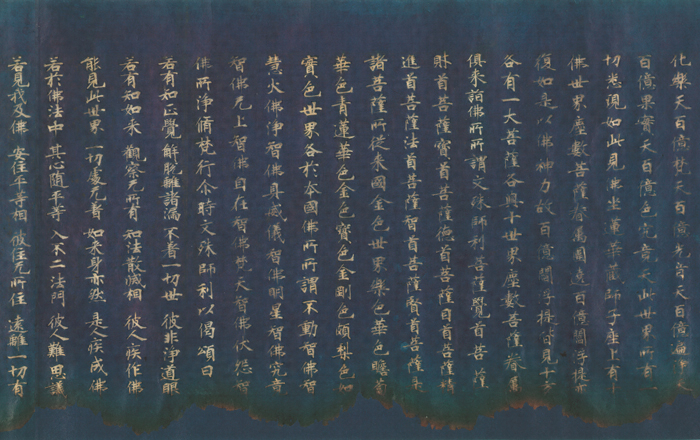 化樂天百億梵天百億光音天百億遍
百億果實天百億色究竟天此世界所有一
切悉現如此見佛坐蓮華藏師子座上有十
佛世界塵數菩薩眷屬圍遶百億閻浮提亦
復如是以佛神力故百億閻浮提皆見十方
各有一大菩薩各與十世界塵數菩薩眷屬
俱來詣佛所所謂文殊師利菩薩覺首菩薩
財首菩薩寶首菩薩德首菩薩目首菩薩精
進首菩薩法首菩薩智首菩薩賢首菩薩是
諸菩薩所從來國金色世界樂色華色瞻蔔
華色青蓮華色金色寶色金剛色頗梨色如
寶色世界各於本國佛所所謂不動智佛智
慧火佛淨智佛具威儀智佛明星智佛究竟
智佛无上智佛自在智佛梵天智佛伏怨智
佛所淨脩梵行尒時文殊師利以偈頌曰
若有知正覺 解脫離諸漏 不着一切世 彼非淨道眼
若有知如来 觀察无所有 知法散滅相 彼人疾作佛
能見此世界 一切處无著 如来身亦然 是人疾成佛
若於佛法中 其心隨平等 入不二法門 彼人難思議
若見我及佛 安住平等相 彼住无所住 遠離一切有